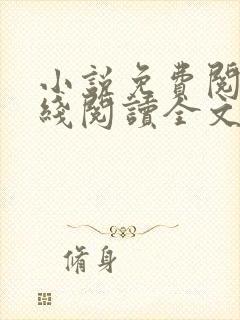 小說免費閱
綫閱讀全文
脩身